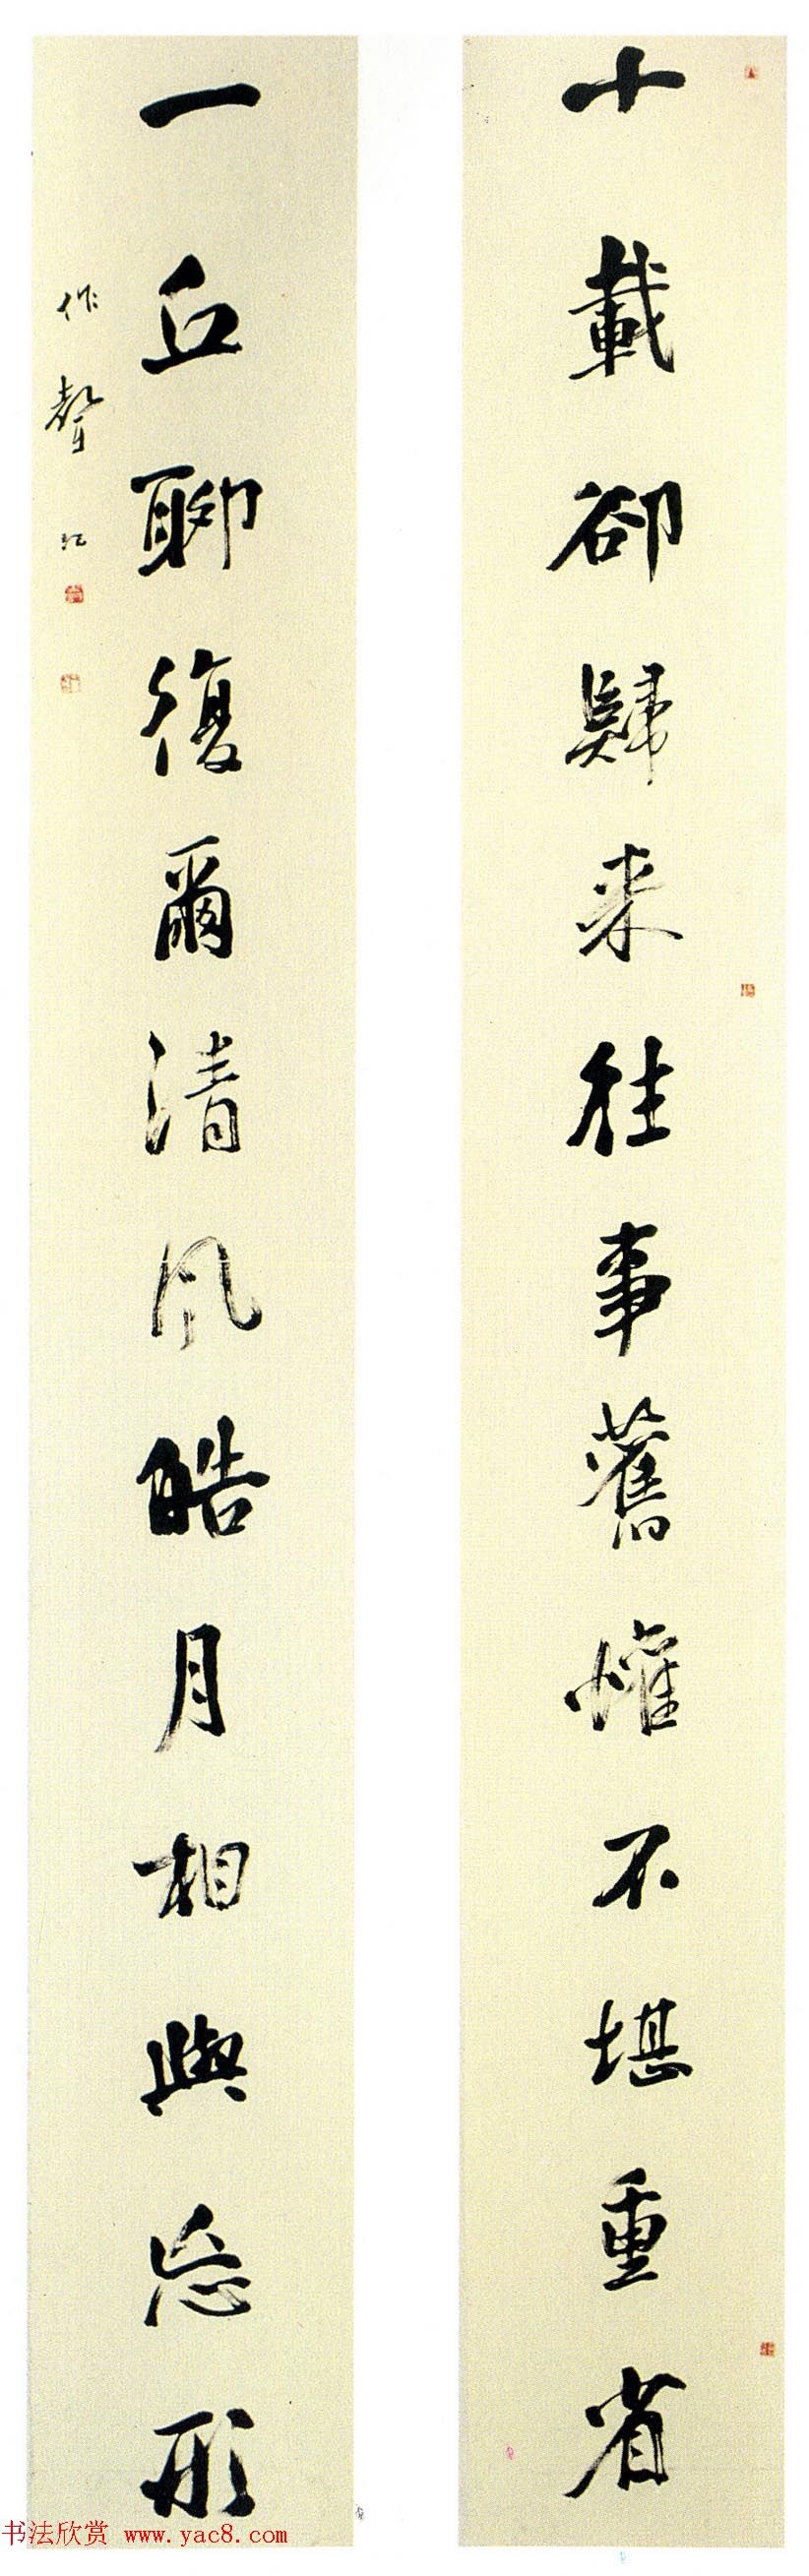 十載卻歸来往事舊懽不堪重省
一丘聊復爾清風皓月相與忘形
作聲
书法欣赏 www.yac8.com